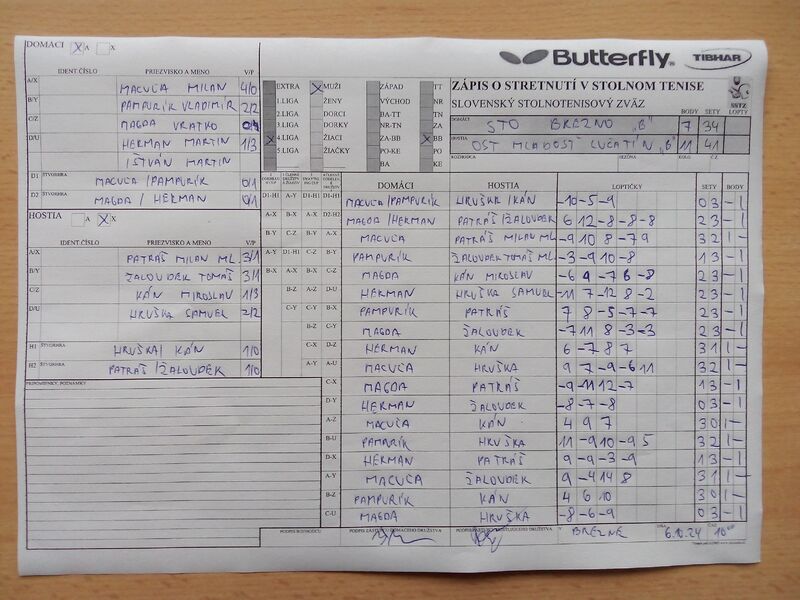 DOMÁCI X A X
Butterfly TIBHAR
IDENT.ČÍSLO PRIEZVISKO A MENO V/P
A/X MACUĽA MILAN 4/0
B/Y PAMPURÍK VLADIMÍR 2/2
C/Z MAGDA VRATKO 0/4
D/U HERMAN MARTIN 1/3
ISTVÁN MARTIN
D1 ŠTVORHRA MACUĽA/PAMPURÍK 0/1
D2 ŠTVORHRA MAGDA/HERMAN 0/1
HOSTIA A X X
IDENT.ČÍSLO PRIEZVISKO A MENO V/P
A/X PATRÁŠ MILAN ML. 3/1
B/Y ŽALOUDEK TOMÁŠ 3/1
C/Z KÁN MIROSLAV 1/3
D/U HRUŠKA SAMUEL 2/2
H1 ŠTVORHRA HRUŠKA/KÁN 1/0
H2 ŠTVORHRA PATRÁŠ/ŽALOUDEK 1/0
PRIPOMIENKY, POZNÁMKY
EXTRA X MUŽI ZÁPAD TT
1.LIGA ŽENY VÝCHOD NR
2.LIGA DORCI BA-TT TN
3.LIGA DORKY NR-TN ZA
X 4.LIGA ŽIACI ZA-BB X BB
5 LIGA ŽIAČKY PO-KE PO
BA KE
ZÁPIS O STRETNUTÍ V STOLNOM TENISE
SLOVENSKÝ STOLNOTENISOVÝ ZVÄZ
SSTZ
BODY SETY LOPTY
DOMÁCI STO BREZNO „B" 7 34
HOSTIA OŠT MLADOSŤ LUČATÍN „B" 11 41
ROZHODCA SEZÓNA KOLO Č.
DOMÁCI HOSTIA LOPTIČKY SETY BODY
MACUĽA/PAMPURÍK HRUŠKA/KÁN -10 -5 -9 03 -1
MAGDA/HERMAN PATRÁŠ/ŽALOUDEK 6 12 -8 -8 -8 23 -1
MACUĽA PATRÁŠ MILAN ML -9 10 8 -7 9 32 1-
PAMPURÍK ŽALOUDEK TOMÁŠ ML -3 -9 10 -8 13 -1
MAGDA KÁN MIROSLAV -6 9 -7 6 -8 23 -1
HERMAN HRUŠKA SAMUEL -11 7 -12 8 -2 23 -1
PAMPURÍK PATRÁŠ 7 8 -5 -7 -7 23 -1
MAGDA ŽALOUDEK -7 11 8 -3 -3 23 -1
HERMAN KÁN 6 -7 8 7 31 1-
MACUĽA HRUŠKA 9 7 -9 -6 11 32 1-
MAGDA PATRÁŠ -9 -11 12 -7 13 -1
HERMAN ŽALOUDEK -8 -7 -8 03 -1
MACUĽA KÁN 4 9 7 30 1-
PAMPURÍK HRUŠKA 11 -9 10 -9 5 32 1-
HERMAN PATRÁŠ 9 -9 -3 -9 13 -1
MACUĽA ŽALOUDEK 9 -4 14 8 31 1-
PAMPURÍK KÁN 4 6 10 30 1-
MAGDA HRUŠKA -8 -6 -9 03 -1
PODPIS ROZHODCU PODPIS ZÁSTUPCU DOMÁCEHO DRUŽSTVA BREZNE 6.10.24 10:00